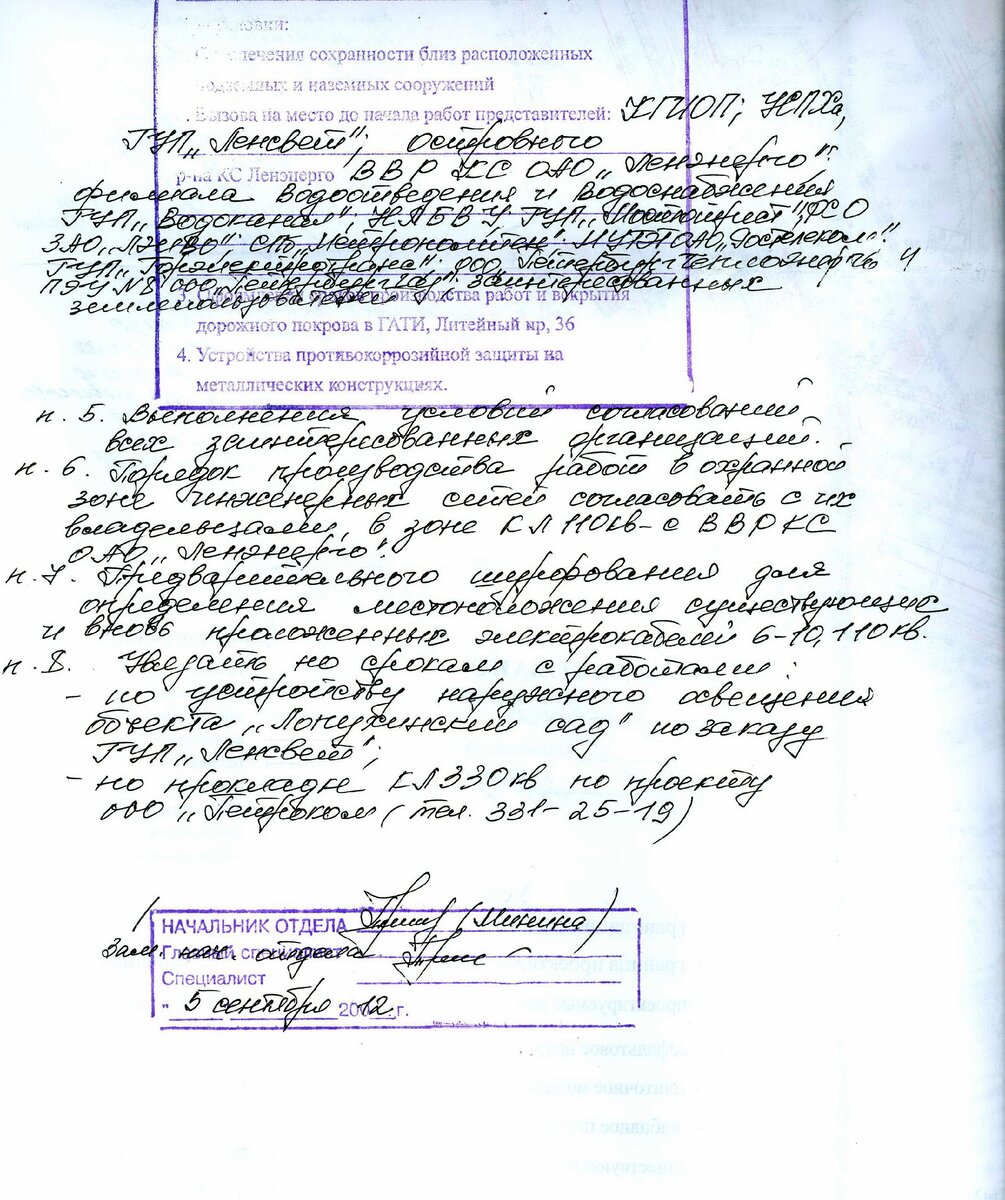 условии:
сохранности близ расположенных
и наземных сооружений
Вызова на место до начала работ представителей: КГИОП; УСПХа,
ГУП „Ленсвет"; островного
р-на КС Ленэнерго ВВР КС ОАО „Ленэнерго".
филиала Водоотведения и Водоснабжения
ГУП „Водоканал"; НАБВУ; ГУП „Мостотрест"; РСО
ЗАО СПб „Метрополитен". ОАО „Ростелеком".
ГУП „Горэлектротранс". ООО „Петербургтеплоэнерго" и
ПЭУ №8 ООО заинтересованных
производства работ и вскрытия
дорожного покрова в ГАТИ, Литейный пр, 36
4. Устройства противокоррозийной защиты на
металлических конструкциях.
п. 5. Выполнения условий согласований
всех заинтересованных организаций.
п. 6. Порядок производства работ в охранной
зоне инженерных сетей согласовать с их
владельцами, в зоне КЛ 110кв - с ВВР КС
ОАО „Ленэнерго".
п. 7. Предварительного шурфования для
определения местоположения существующих
и вновь проложенных электрокабелей 6-10, 110кв.
п. 8. Увязать по срокам с работами:
- по устройству наружного освещения
объекта „Лопухинский сад" по заказу
ГУП „Ленсвет";
- по прокладке КЛ 330кв по проекту
ООО „Петроком (тел. 331-25-19)
НАЧАЛЬНИК ОТДЕЛА (Минина)
Главный специалист
Зам. нач. отдела
Специалист
" 5 сентября 2012 г.